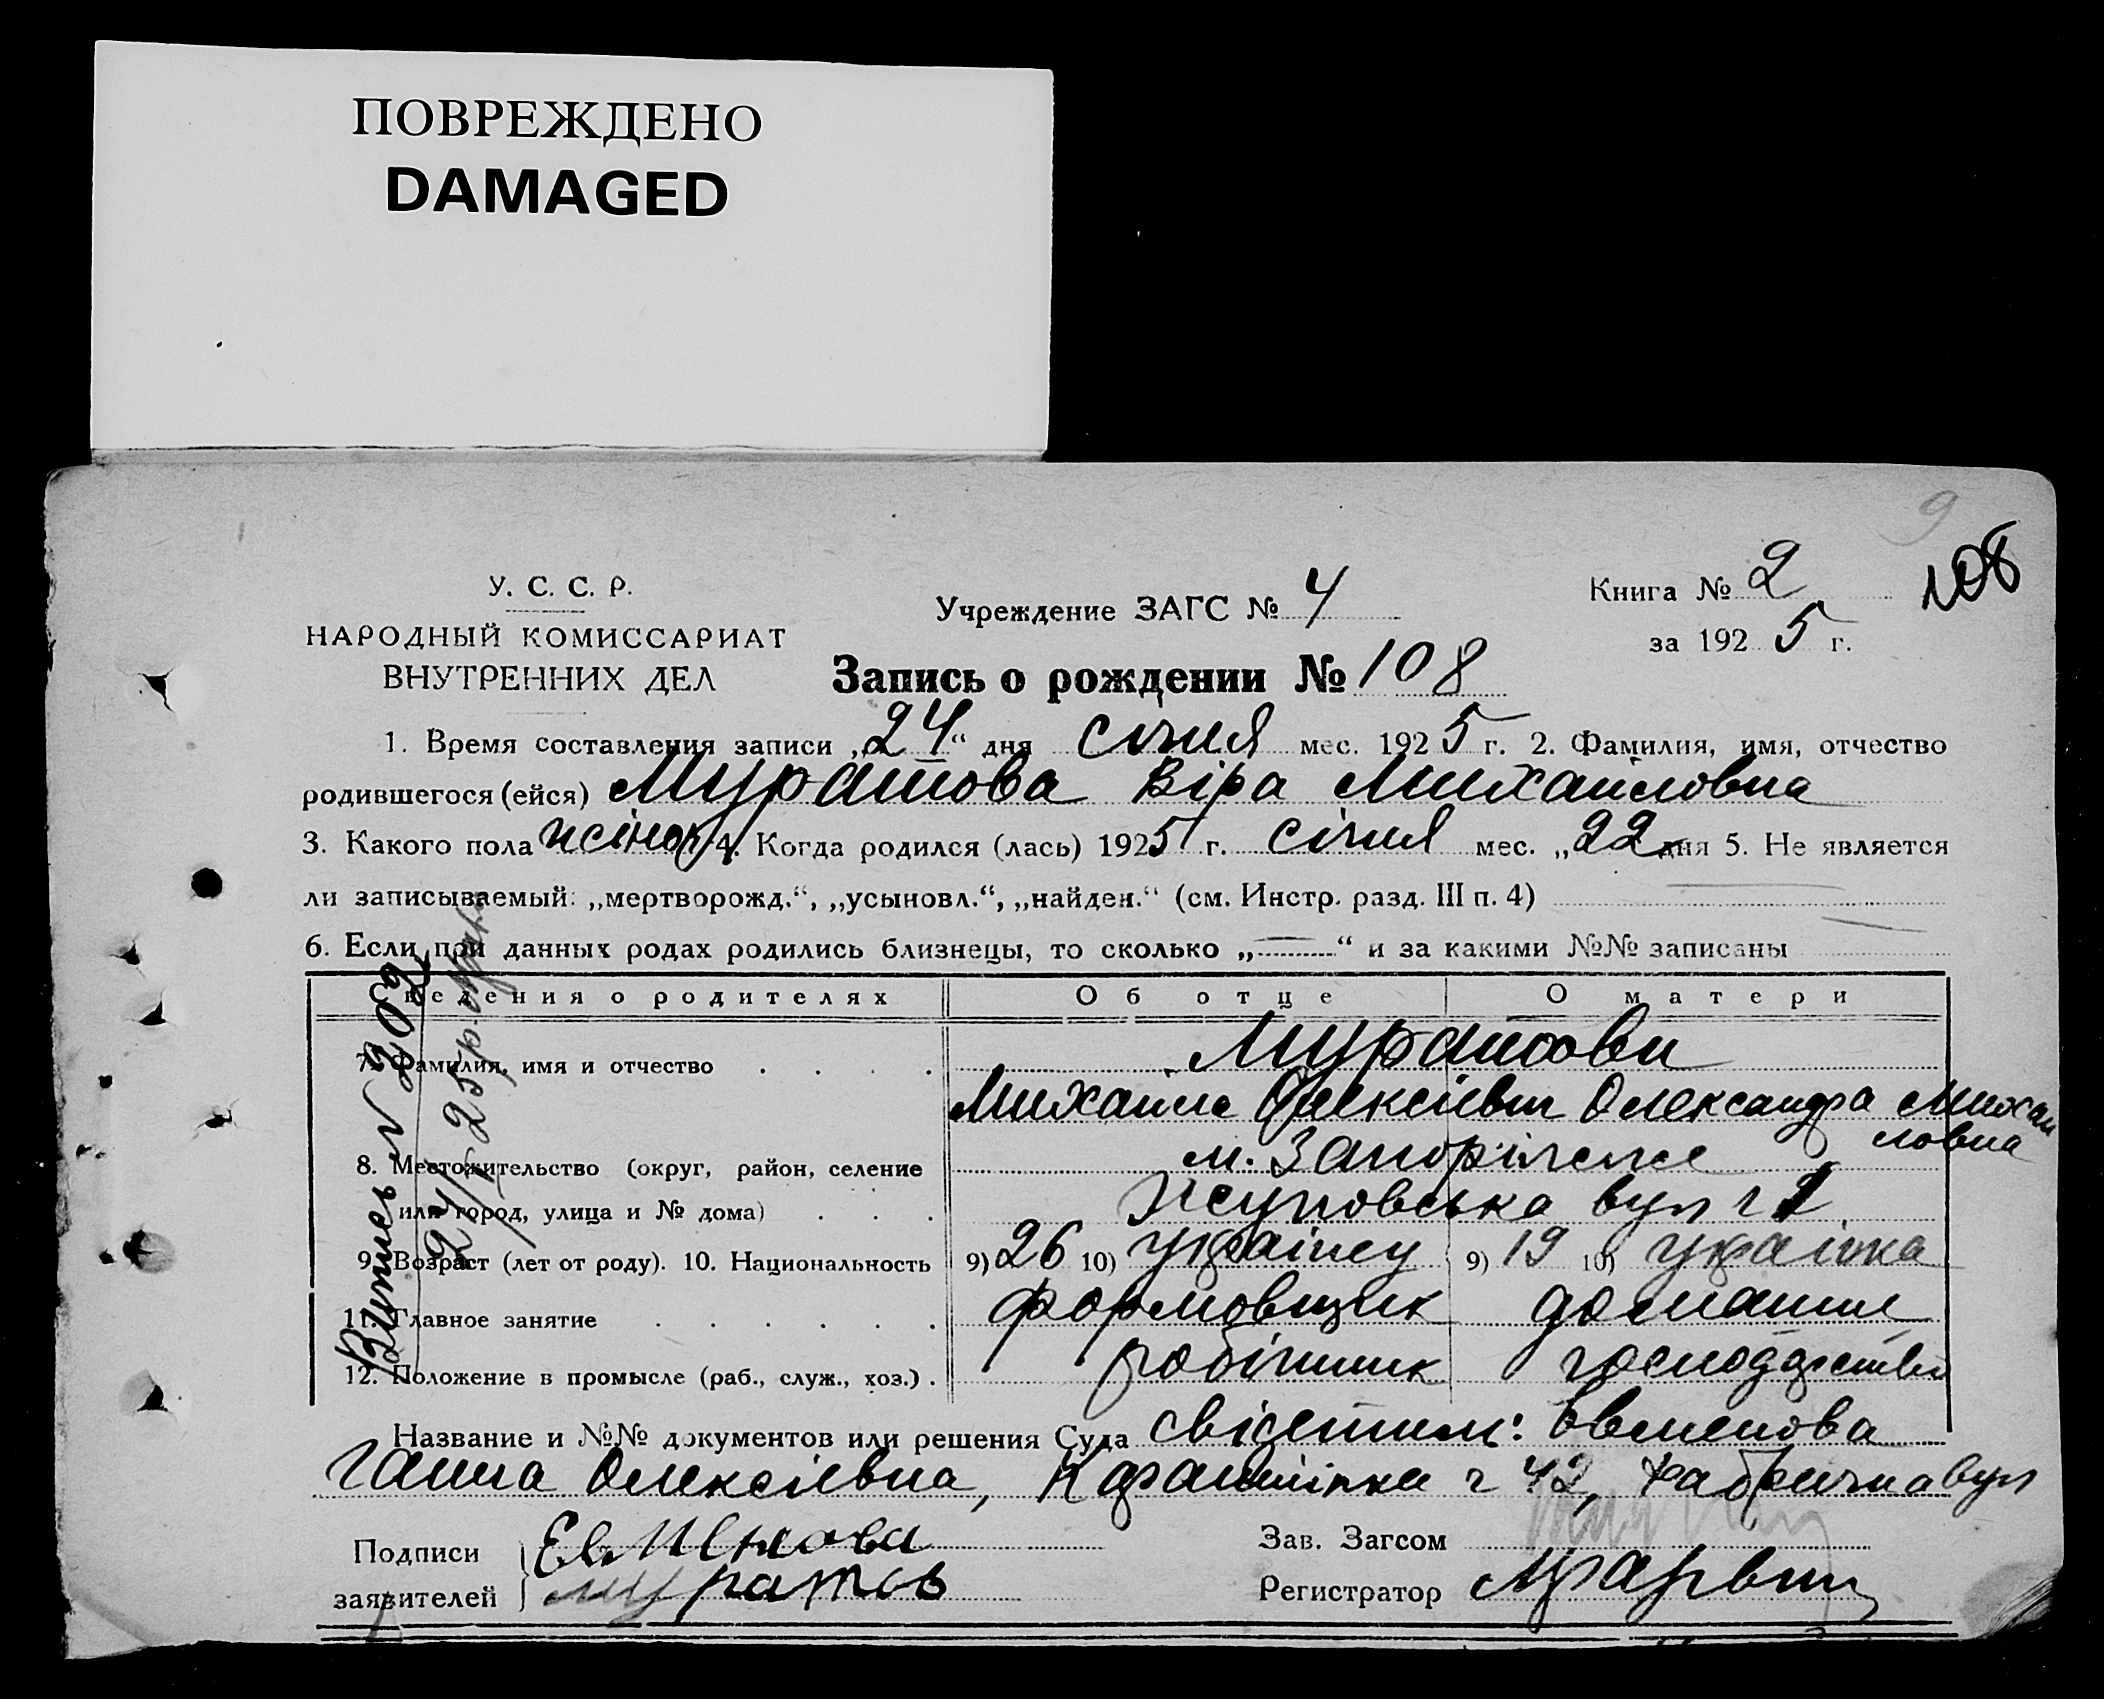 ПОВРЕЖДЕНО
DAMAGED
9
108
У. С. С. Р.
НАРОДНЫЙ КОМИССАРИАТ
ВНУТРЕННИХ ДЕЛ
Учреждение ЗАГС № 4
Книга № 2
за 1925 г.
Запись о рождении № 108
1. Время составления записи „24“ дня січня мес. 1925 г. 2. Фамилия, имя, отчество
родившегося (ейся) Муратова Віра Михайловна
3. Какого пола жіноч 4. Когда родился (лась) 1925 г. січня мес. „22 дня 5. Не является
ли записываемый: „мертворожд.“, „усыновл.“, „найден.“ (см. Инстр. разд. III п. 4)
6. Если при данных родах родились близнецы, то сколько „—“ и за какими №№ записаны
ведения о родителях Об отце О матери
7. Фамилия, имя и отчество Муратови
Михайло Олексієвич Олександра Михай
ловна
8. Местожительство (округ, район, селение м. Запоріжже
или город, улица и № дома) вул ч
9. Возраст (лет от роду). 10. Национальность 9) 26 10) українец 9) 19 10) українка
11. Главное занятие формовщик домашнє
12. Положение в промысле (раб., служ., хоз.) робітник господарство
Витись № 302
24/I-25р
Название и №№ документов или решения Суда свідетели: Евменова
Ганна Олексіевна, ч 42, Фабрична вул
Подписи
заявителей
Евменова
Муратов
Зав. Загсом
Регистратор